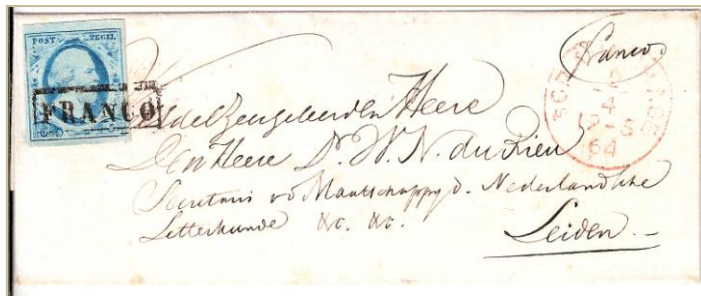 POST ZEGEL
FRANCO
franco
Edelzeergeleerden Heere
Den Heere Dr. W. N. du Rieu
Secretaris v d Maatschappy d. Nederlandsche
Letterkunde &c. &c.
Leiden.
4
12-6
64